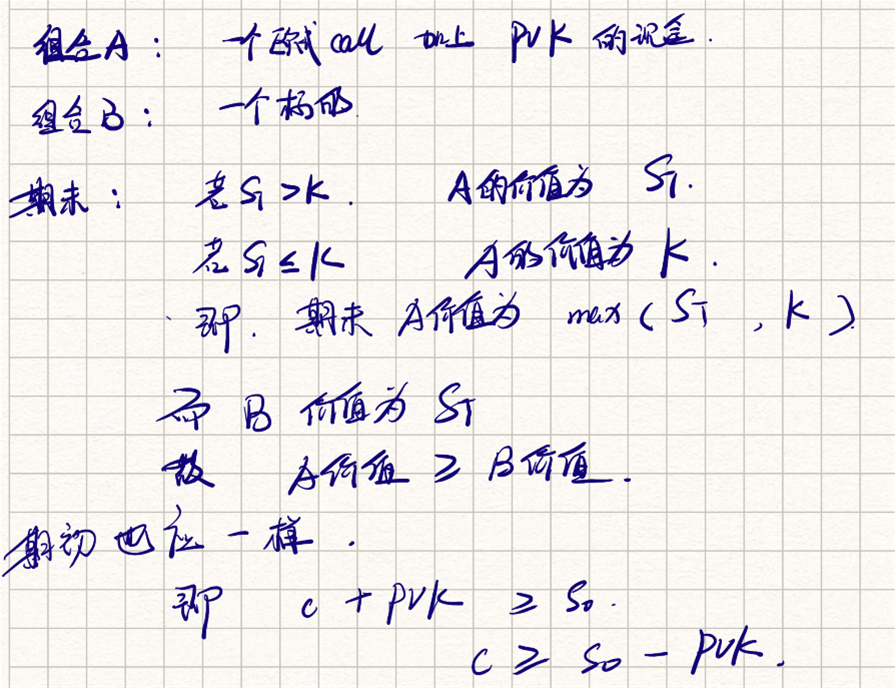 组合A： 一个欧式call 加上 PVK 的现金.
组合B： 一个标的.
期末： 若 ST > K. A的价值为 ST.
若 ST ≤ K A的价值为 K.
即. 期末 A价值为 max ( ST , K )
而 B 价值为 ST
故 A价值 ≥ B价值.
期初也应一样.
即 c + PVK ≥ S0.
c ≥ S0 - PVK.